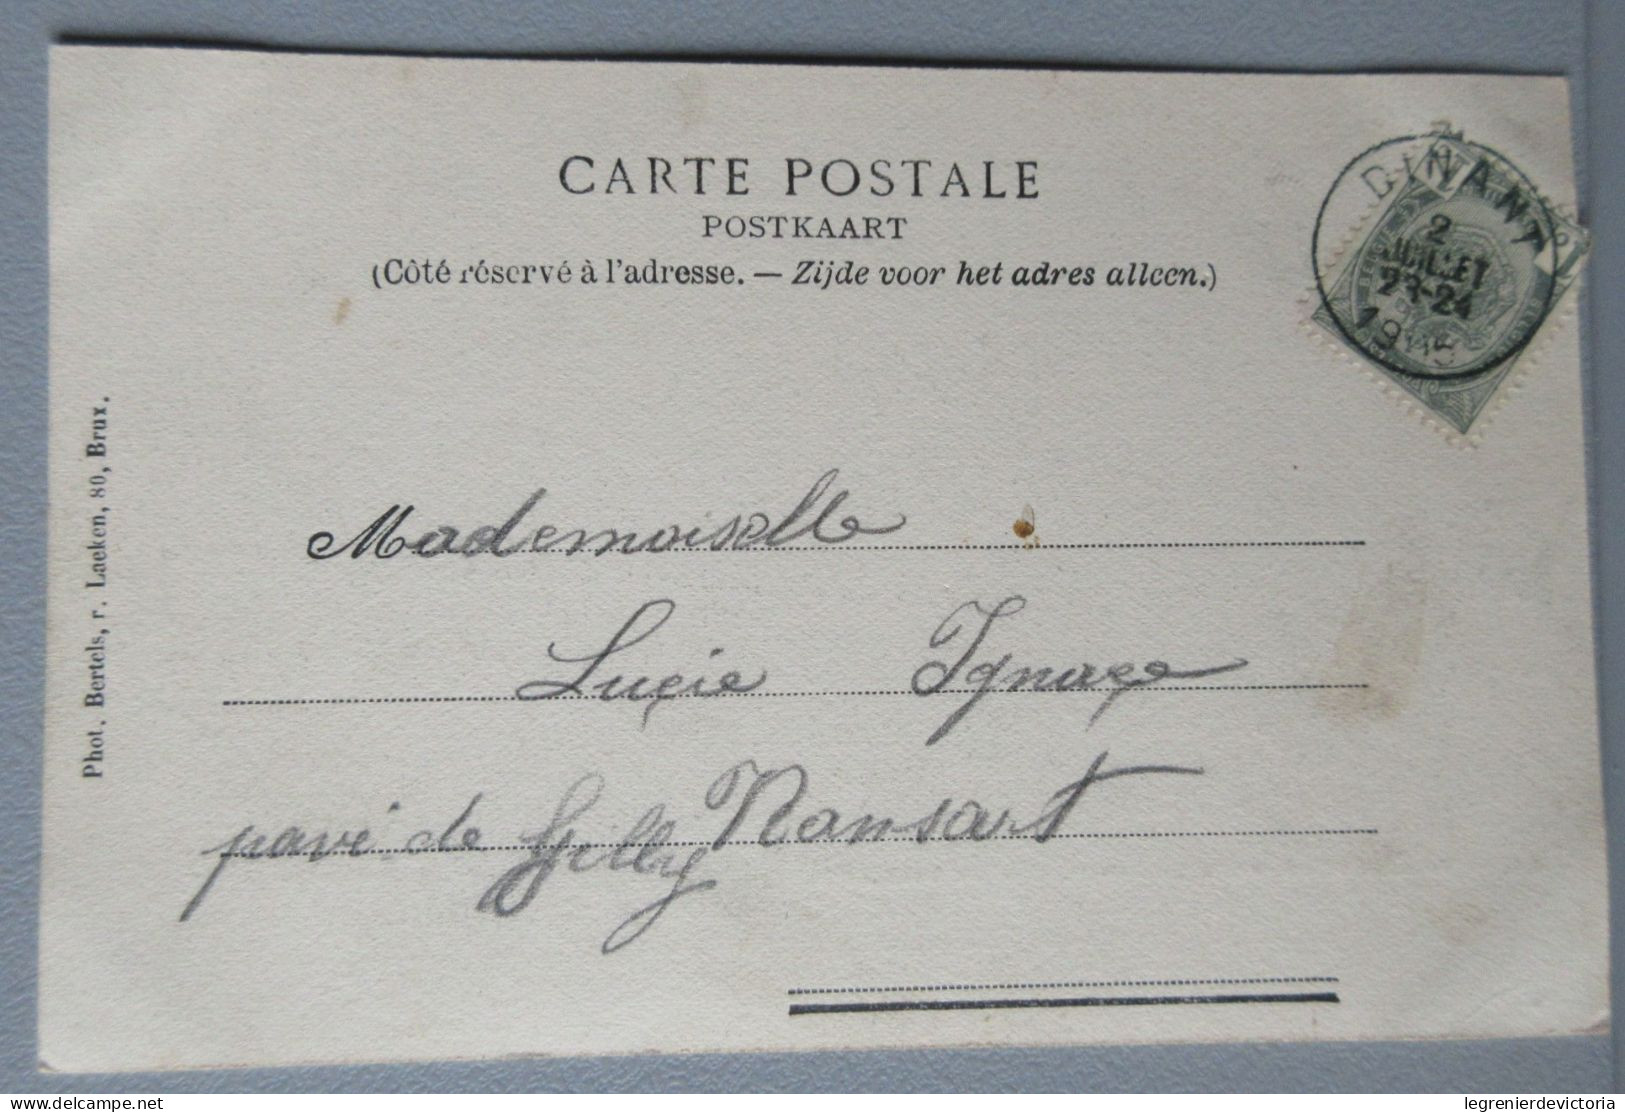 CARTE POSTALE
POSTKAART
(Côté réservé à l'adresse. — Zijde voor het adres alleen.)
DINANT
2
JUILLET
23-24
19
Phot. Bertels, r. Laeken, 80, Brux.
Mademoiselle
Lucie Ignace
pavé de Gilly Ransart
delcampe.net
legrenierdevictoria